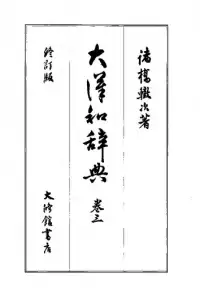 諸橋轍次著
大漢和辞典
巻三
修訂版
大修館書店